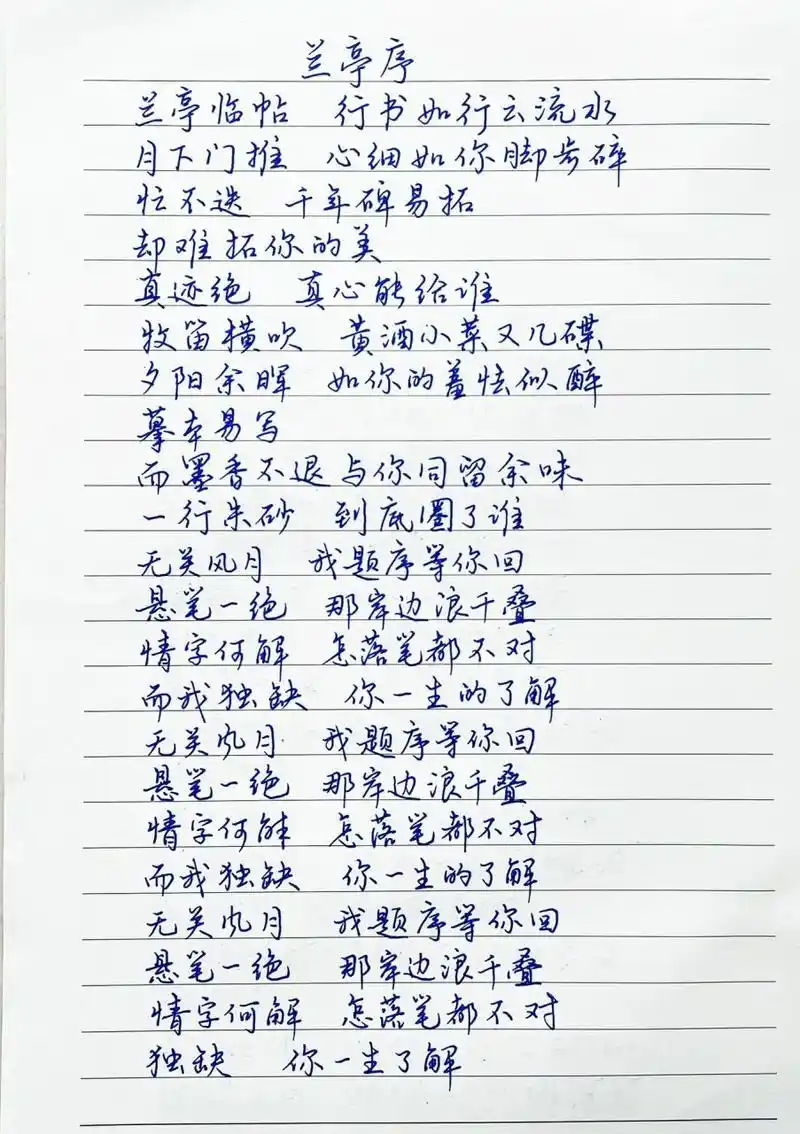 兰亭序
兰亭临帖 行书如行云流水
月下门推 心细如你脚步碎
忙不迭 千年碑易拓
却难拓你的美
真迹绝 真心能给谁
牧笛横吹 黄酒小菜又几碟
夕阳余晖 如你的羞怯似醉
摹本易写
而墨香不退与你同留余味
一行朱砂 到底圈了谁
无关风月 我题序等你回
悬笔一绝 那岸边浪千叠
情字何解 怎落笔都不对
而我独缺 你一生的了解
无关风月 我题序等你回
悬笔一绝 那岸边浪千叠
情字何解 怎落笔都不对
而我独缺 你一生的了解
无关风月 我题序等你回
悬笔一绝 那岸边浪千叠
情字何解 怎落笔都不对
独缺 你一生了解